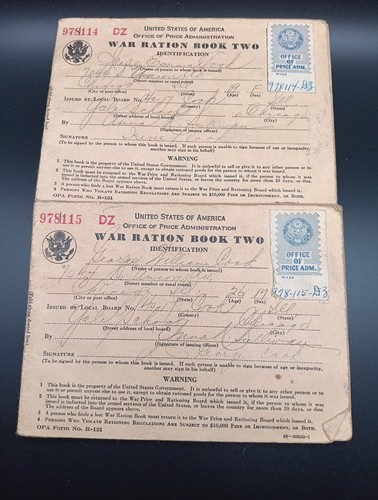 978114 DZ
UNITED STATES OF AMERICA
OFFICE OF PRICE ADMINISTRATION
WAR RATION BOOK TWO
IDENTIFICATION
OFFICE
OF
PRICE ADM.
R-125
978114-DZ
(Name of person to whom book is issued)
(Street number or rural route)
(City or post office) (State) (Age) (Sex)
ISSUED BY LOCAL BOARD NO. 40-17 Cook Chicago
(Street address of local board) (City)
By
(Signature of issuing officer)
SIGNATURE
(To be signed by the person to whom this book is issued. If such person is unable to sign because of age or incapacity, another may sign in his behalf)
WARNING
1 This book is the property of the United States Government. It is unlawful to sell or give it to any other person or to use it, except to obtain rationed goods for the person to whom it was issued.
2 This book must be returned to the War Price and Rationing Board which issued it, if the person to whom it was issued is inducted into the armed services of the United States, or leaves the country for more than 30 days, or dies. The address of the Board appears above.
3 A person who finds a lost War Ration Book must return it to the War Price and Rationing Board which issued it.
4 PERSONS WHO VIOLATE RATIONING REGULATIONS ARE SUBJECT TO $10,000 FINE OR IMPRISONMENT, OR BOTH.
OPA Form No. R-121
978115 DZ
UNITED STATES OF AMERICA
OFFICE OF PRICE ADMINISTRATION
WAR RATION BOOK TWO
IDENTIFICATION
OFFICE
OF
PRICE ADM.
R-125
978-115-DZ
George William Cook
(Name of person to whom book is issued)
(Street number or rural route)
26 M
(City or post office) (State) (Age) (Sex)
ISSUED BY LOCAL BOARD NO. Cook
Yale School Chicago
(Street address of local board) (City)
By
(Signature of issuing officer)
SIGNATURE George Cook
(To be signed by the person to whom this book is issued. If such person is unable to sign because of age or incapacity, another may sign in his behalf)
WARNING
1 This book is the property of the United States Government. It is unlawful to sell or give it to any other person or to use it, except to obtain rationed goods for the person to whom it was issued.
2 This book must be returned to the War Price and Rationing Board which issued it, if the person to whom it was issued is inducted into the armed services of the United States, or leaves the country for more than 30 days, or dies. The address of the Board appears above.
3 A person who finds a lost War Ration Book must return it to the War Price and Rationing Board which issued it.
4 PERSONS WHO VIOLATE RATIONING REGULATIONS ARE SUBJECT TO $10,000 FINE OR IMPRISONMENT, OR BOTH.
OPA Form No. R-121
16-30853-1